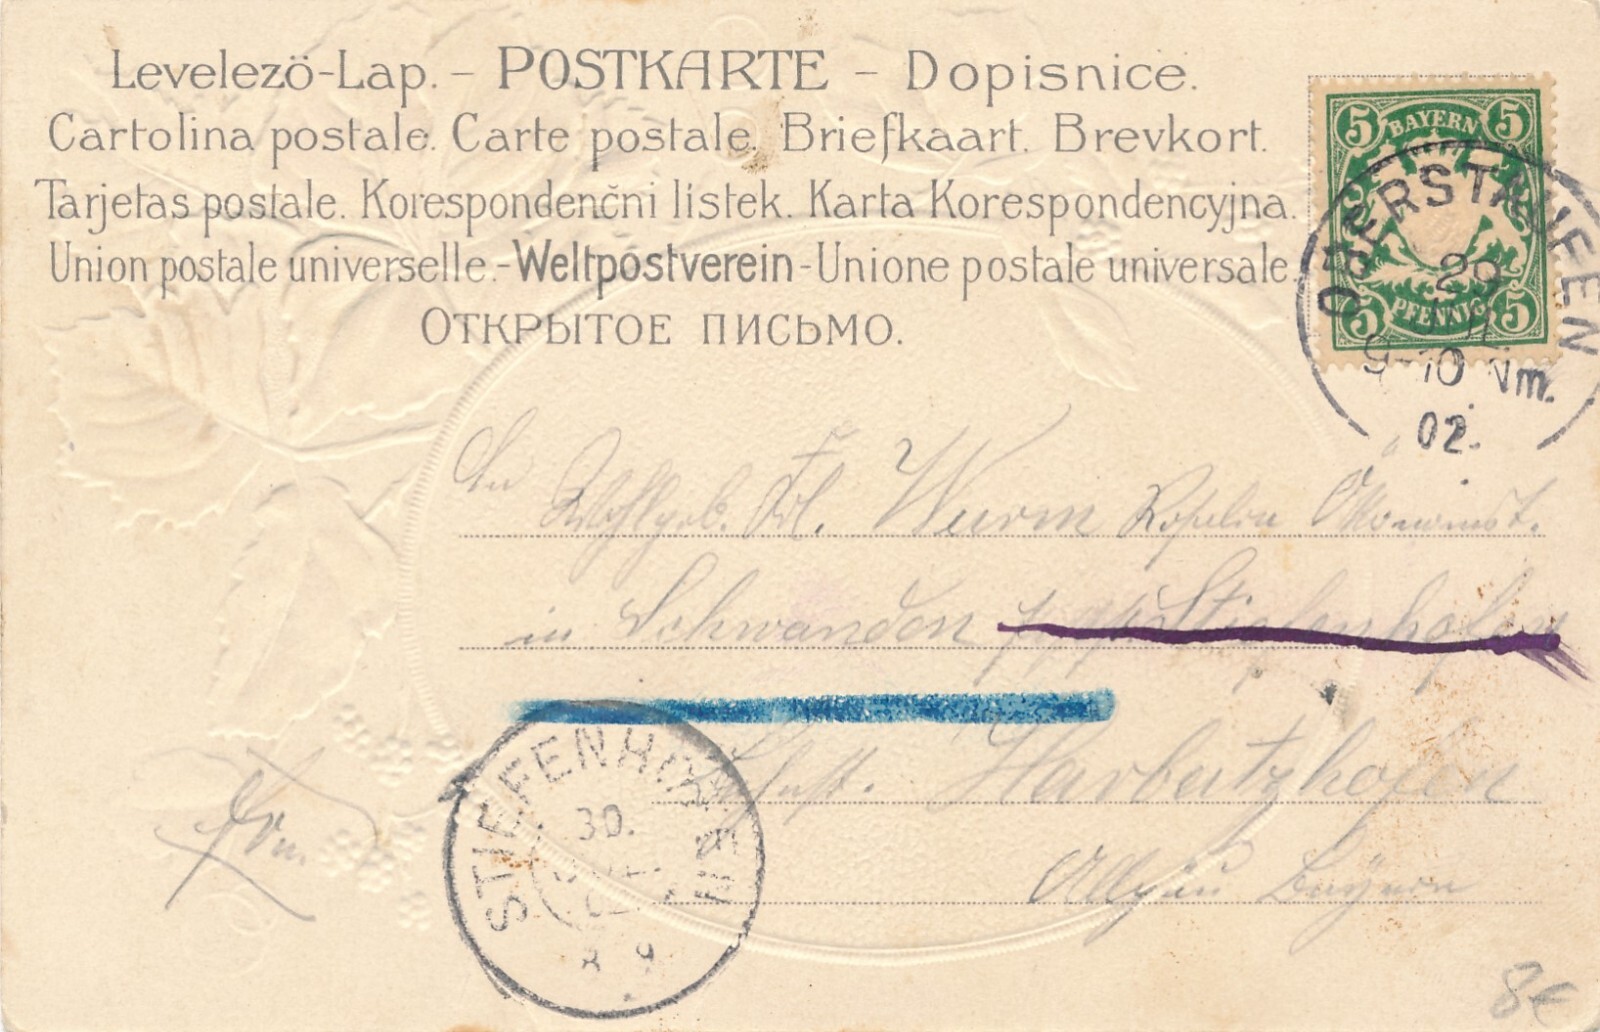 Levelezö-Lap. – POSTKARTE – Dopisnice.
Cartolina postale. Carte postale. Briefkaart. Brevkort.
Tarjetas postale. Korespondenčni listek. Karta Korespondencyjna.
Union postale universelle.-Weltpostverein-Unione postale universale.
ОТКРЫТОЕ ПИСЬМО.
5 BAYERN 5
5 PFENNIG 5
OBERSTAUFEN
29
9-10 Nm.
02.
An
Wohlgeb. Frl. Wurm
in Schwanden Stiefenhofen
Harbatzhofen
Allgäu Bayern
STIEFENHOFEN
30.
8 9
8€